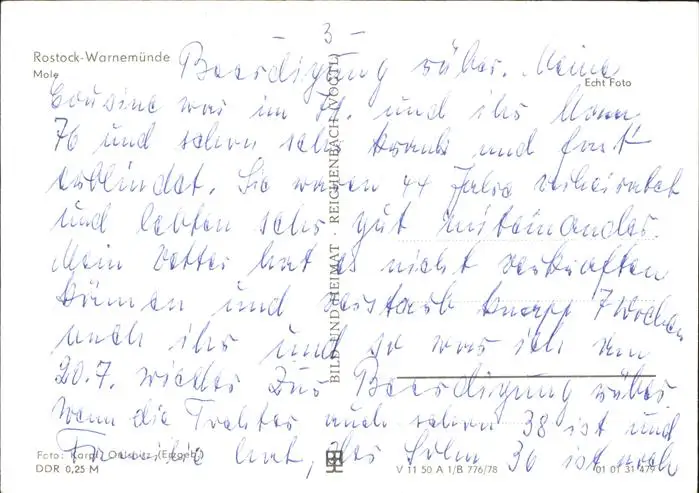 - 3 -
Rostock-Warnemünde
Mole
Echt Foto
Beerdigung rüber. Meine
Cousine war im 74. und ihr Mann
76 und schon sehr krank und fast
erblindet. Sie waren 44 Jahre verheiratet
und lebten sehr gut miteinander.
Mein Vetter hat es nicht verkraften
können und verstarb knapp 7 Wochen
nach ihr und so war ich am
20.7. wieder zur Beerdigung rüber
Wenn die Tochter auch schon 38 ist und
Familie hat, der Sohn 36 ist noch
BILD UND HEIMAT · REICHENBACH (VOGTL)
Foto: (Erzgeb.)
DDR 0,25 M
V 11 50 A 1/B 776/78
01 01 31 479